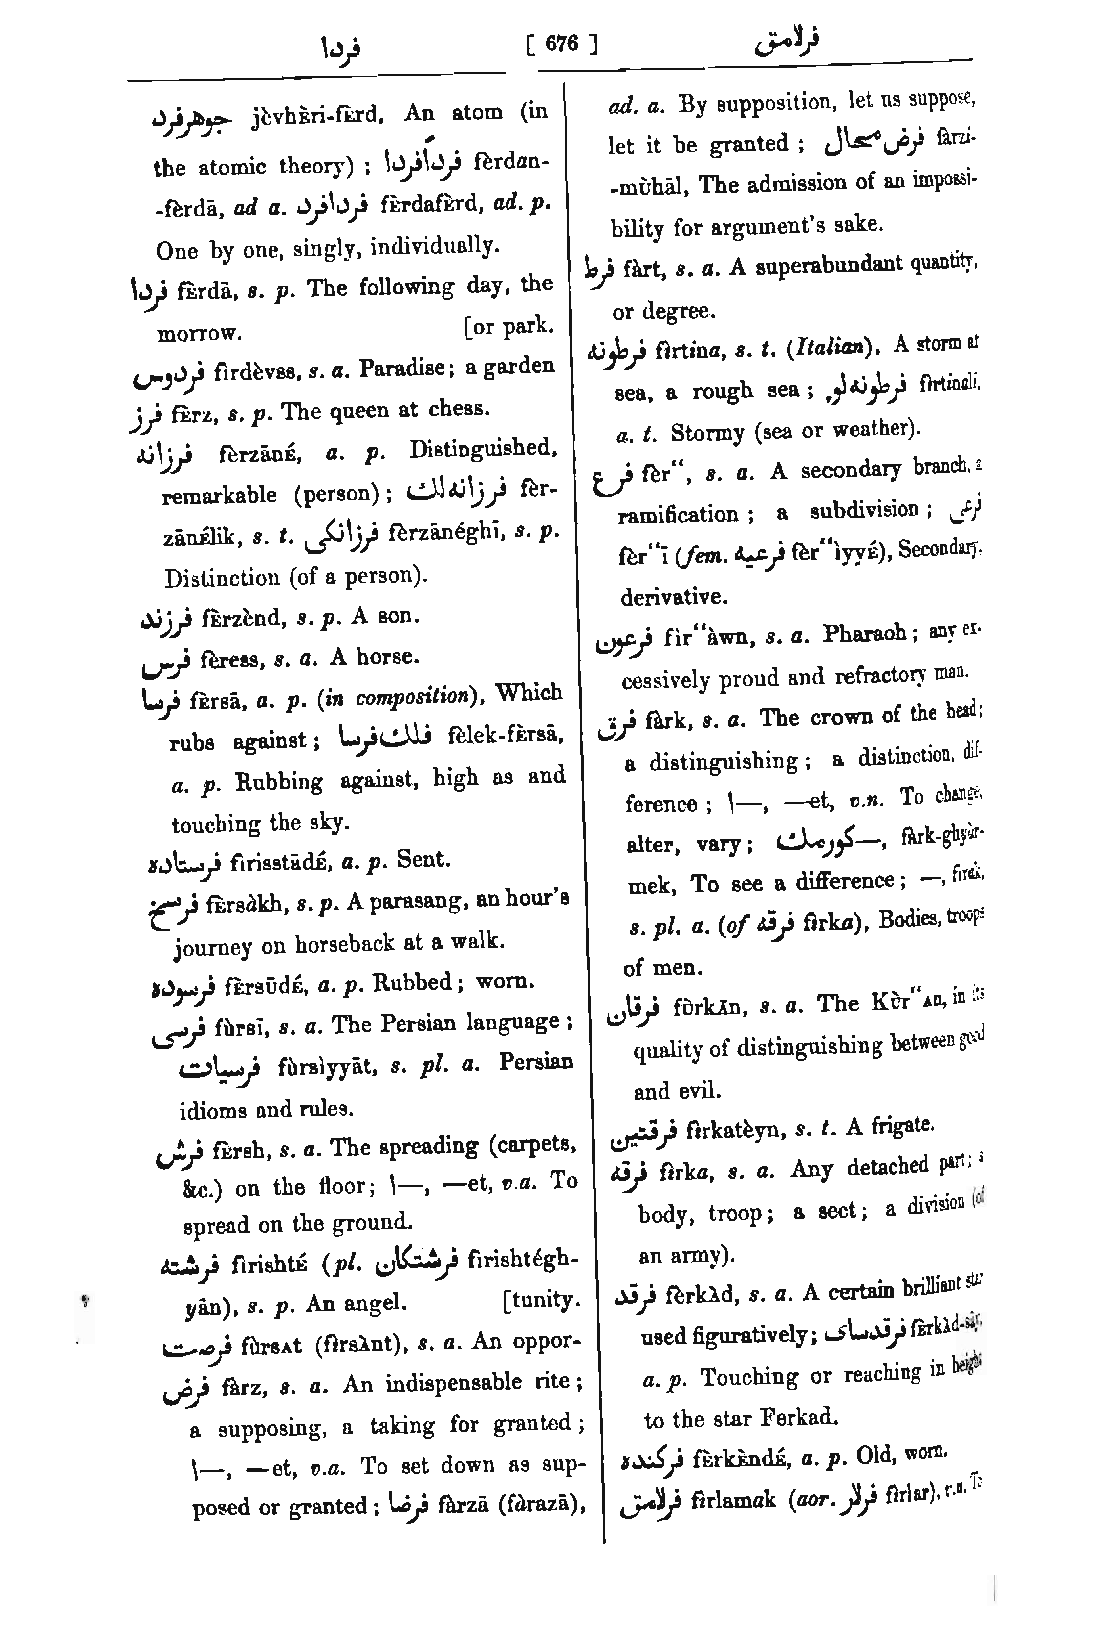 فردا [ 676 ] فرلامق
جوهرفرد jèvhèri-fèrd, An atom (in
the atomic theory) ; فرداًفردا fèrdan-
-fèrdā, ad a. فردافرد fèrdafèrd, ad. p.
One by one, singly, individually.
فردا fèrdā, s. p. The following day, the
morrow. [or park.
فردوس fìrdèvss, s. a. Paradise; a garden
فرز fèrz, s. p. The queen at chess.
فرزانه fèrzāné, a. p. Distinguished,
remarkable (person) ; فرزانه‌لك fèr-
zānélik, s. t. فرزانكی fèrzānéghī, s. p.
Distinction (of a person).
فرزند fèrzènd, s. p. A son.
فرس fèress, s. a. A horse.
فرسا fèrsā, a. p. (in composition), Which
rubs against ; فلك‌فرسا fèlek-fèrsā,
a. p. Rubbing against, high as and
touching the sky.
فرستاده fìrisstādé, a. p. Sent.
فرسخ fèrsàkh, s. p. A parasang, an hour's
journey on horseback at a walk.
فرسوده fèrsūdé, a. p. Rubbed ; worn.
فرسی fùrsī, s. a. The Persian language ;
فرسیات fùrsìyyāt, s. pl. a. Persian
idioms and rules.
فرش fèrsh, s. a. The spreading (carpets,
&c.) on the floor; ا—, —et, v.a. To
spread on the ground.
فرشته fìrishté (pl. فرشتكان fìrishtégh-
yān), s. p. An angel. [tunity.
فرصت fùrsᴀt (fìrsànt), s. a. An oppor-
فرض fàrz, s. a. An indispensable rite ;
a supposing, a taking for granted ;
ا—, —et, v.a. To set down as sup-
posed or granted ; فرضا fàrzā (fàrazā),
ad. a. By supposition, let us suppose,
let it be granted ; فرض محال fàrzi-
-mùhāl, The admission of an impossi-
bility for argument's sake.
فرط fàrt, s. a. A superabundant quantity,
or degree.
فرطونه fìrtina, s. t. (Italian), A storm at
sea, a rough sea ; فرطونه‌لو fìrtinali,
a. t. Stormy (sea or weather).
فرع fèr“, s. a. A secondary branch, a
ramification ; a subdivision ; فرعی
fèr“ī (fem. فرعیه fèr“ìyyé), Secondary,
derivative.
فرعون fìr“àwn, s. a. Pharaoh ; any ex-
cessively proud and refractory man.
فرق fàrk, s. a. The crown of the head;
a distinguishing ; a distinction, dif-
ference ; ا—, —et, v.n. To change,
alter, vary ; كورمك—, fàrk-ghyùr-
mek, To see a difference ; —, firak,
s. pl. a. (of فرقه fìrka), Bodies, troops
of men.
فرقان fùrkān, s. a. The Kùr“ᴀn, in its
quality of distinguishing between good
and evil.
فرقتین fìrkatèyn, s. t. A frigate.
فرقه fìrka, s. a. Any detached part; a
body, troop ; a sect ; a division (of
an army).
فرقد fèrkàd, s. a. A certain brilliant star
used figuratively; فرقدسای fèrkàd-sāy,
a. p. Touching or reaching in height
to the star Ferkad.
فركنده fèrkèndé, a. p. Old, worn.
فرلامق fìrlamak (aor. فرلار fìrlar), v.a. To